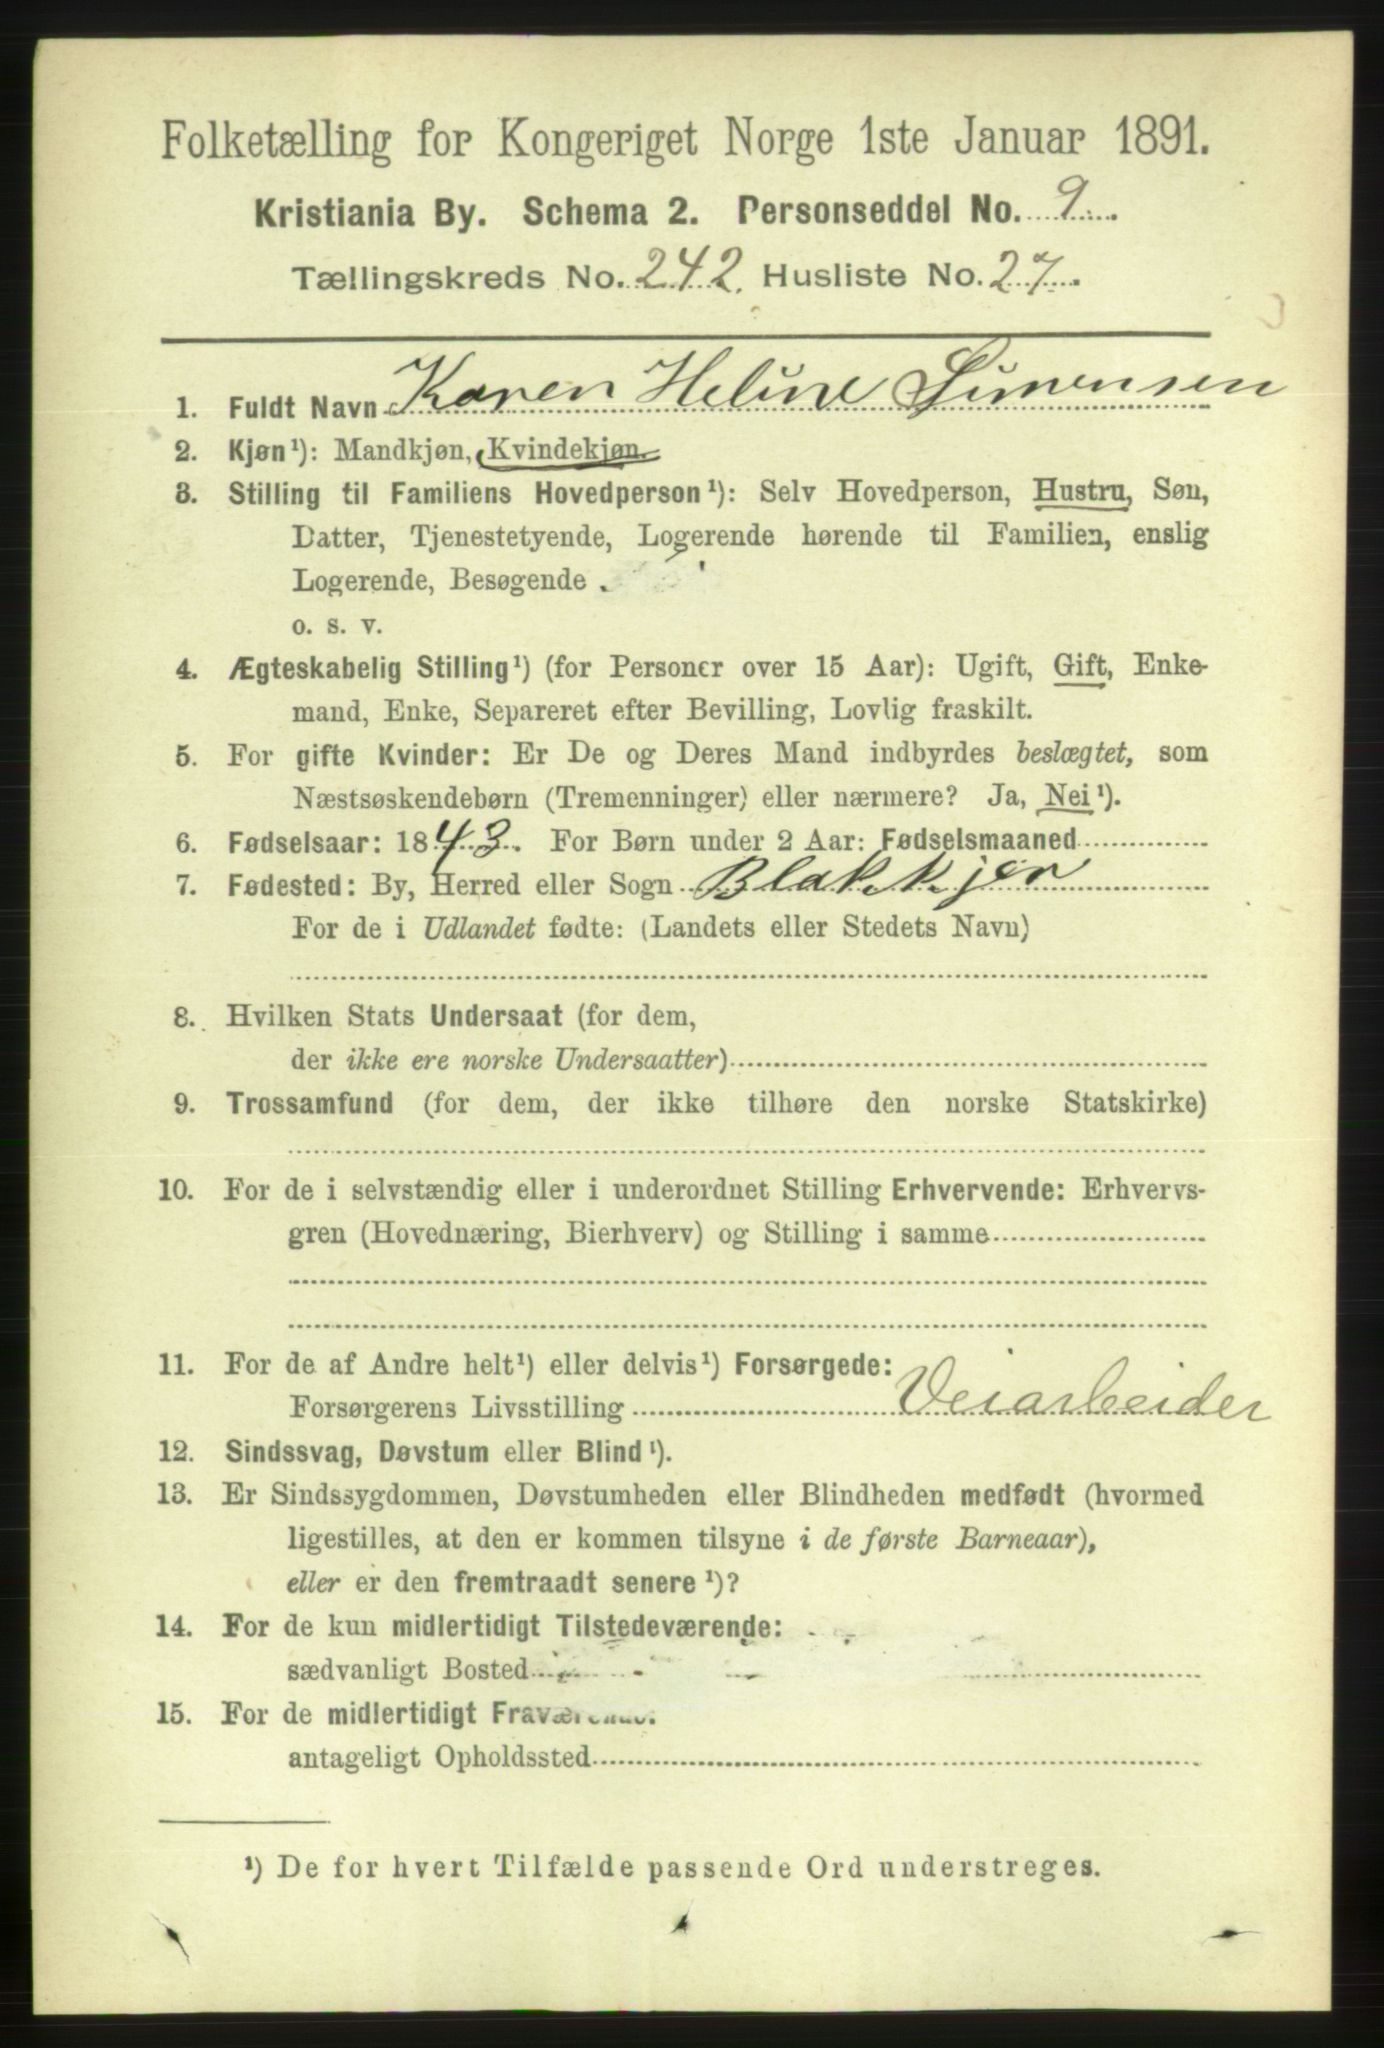 Folketælling for Kongeriget Norge 1ste Januar 1891.
Kristiania By. Schema 2. Personseddel No. 9
Tællingskreds No. 242 Husliste No. 27
1. Fuldt Navn Karen Heline Simensen
2. Kjøn¹): Mandkjøn, Kvindekjøn.
3. Stilling til Familiens Hovedperson¹): Selv Hovedperson, Hustru, Søn,
Datter, Tjenestetyende, Logerende hørende til Familien, enslig
Logerende, Besøgende .
o. s. v.
4. Ægteskabelig Stilling¹) (for Personer over 15 Aar): Ugift, Gift, Enke-
mand, Enke, Separeret efter Bevilling, Lovlig fraskilt.
5. For gifte Kvinder: Er De og Deres Mand indbyrdes beslægtet, som
Næstsøskendebørn (Tremenninger) eller nærmere? Ja, Nei¹).
6. Fødselsaar: 1843. For Børn under 2 Aar: Fødselsmaaned
7. Fødested: By, Herred eller Sogn Blakkjer
For de i Udlandet fødte: (Landets eller Stedets Navn)
8. Hvilken Stats Undersaat (for dem,
der ikke ere norske Undersaatter)
9. Trossamfund (for dem, der ikke tilhøre den norske Statskirke)
10. For de i selvstændig eller i underordnet Stilling Erhvervende: Erhvervs-
gren (Hovednæring, Bierhverv) og Stilling i samme
11. For de af Andre helt¹) eller delvis¹) Forsørgede:
Forsørgerens Livsstilling Veiarbeider
12. Sindssvag, Døvstum eller Blind¹).
13. Er Sindssygdommen, Døvstumheden eller Blindheden medfødt (hvormed
ligestilles, at den er kommen tilsyne i de første Barneaar),
eller er den fremtraadt senere¹)?
14. For de kun midlertidigt Tilstedeværende:
sædvanligt Bosted
15. For de midlertidigt Fraværende:
antageligt Opholdssted
¹) De for hvert Tilfælde passende Ord understreges.